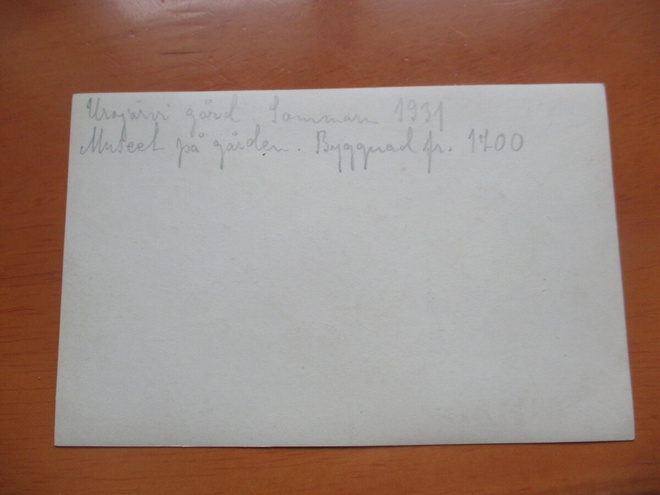 Urajärvi gård Sommarn 1931
Museet på gården. Byggnad fr. 1700